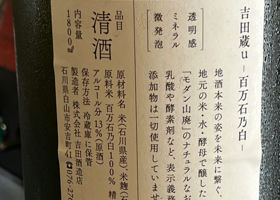 吉田蔵u ―百万石乃白―
地酒本来の姿を未来に繋ぐ、
地元の米・水・酵母で醸した
「モダン山廃」のナチュラルなお
乳酸や酵素剤など、表示義務
添加物は一切使用していませ
透明感
ミネラル
微発泡
品目
清酒
内容量
1800㎖
原材料名 米(石川県産)米麹(
原料米 百万石乃白100%精
アルコール分 13%(原酒)
保存方法 冷蔵庫に保管
製造者 株式会社 吉田酒造店
石川県白山市安吉町41 ☎076-276